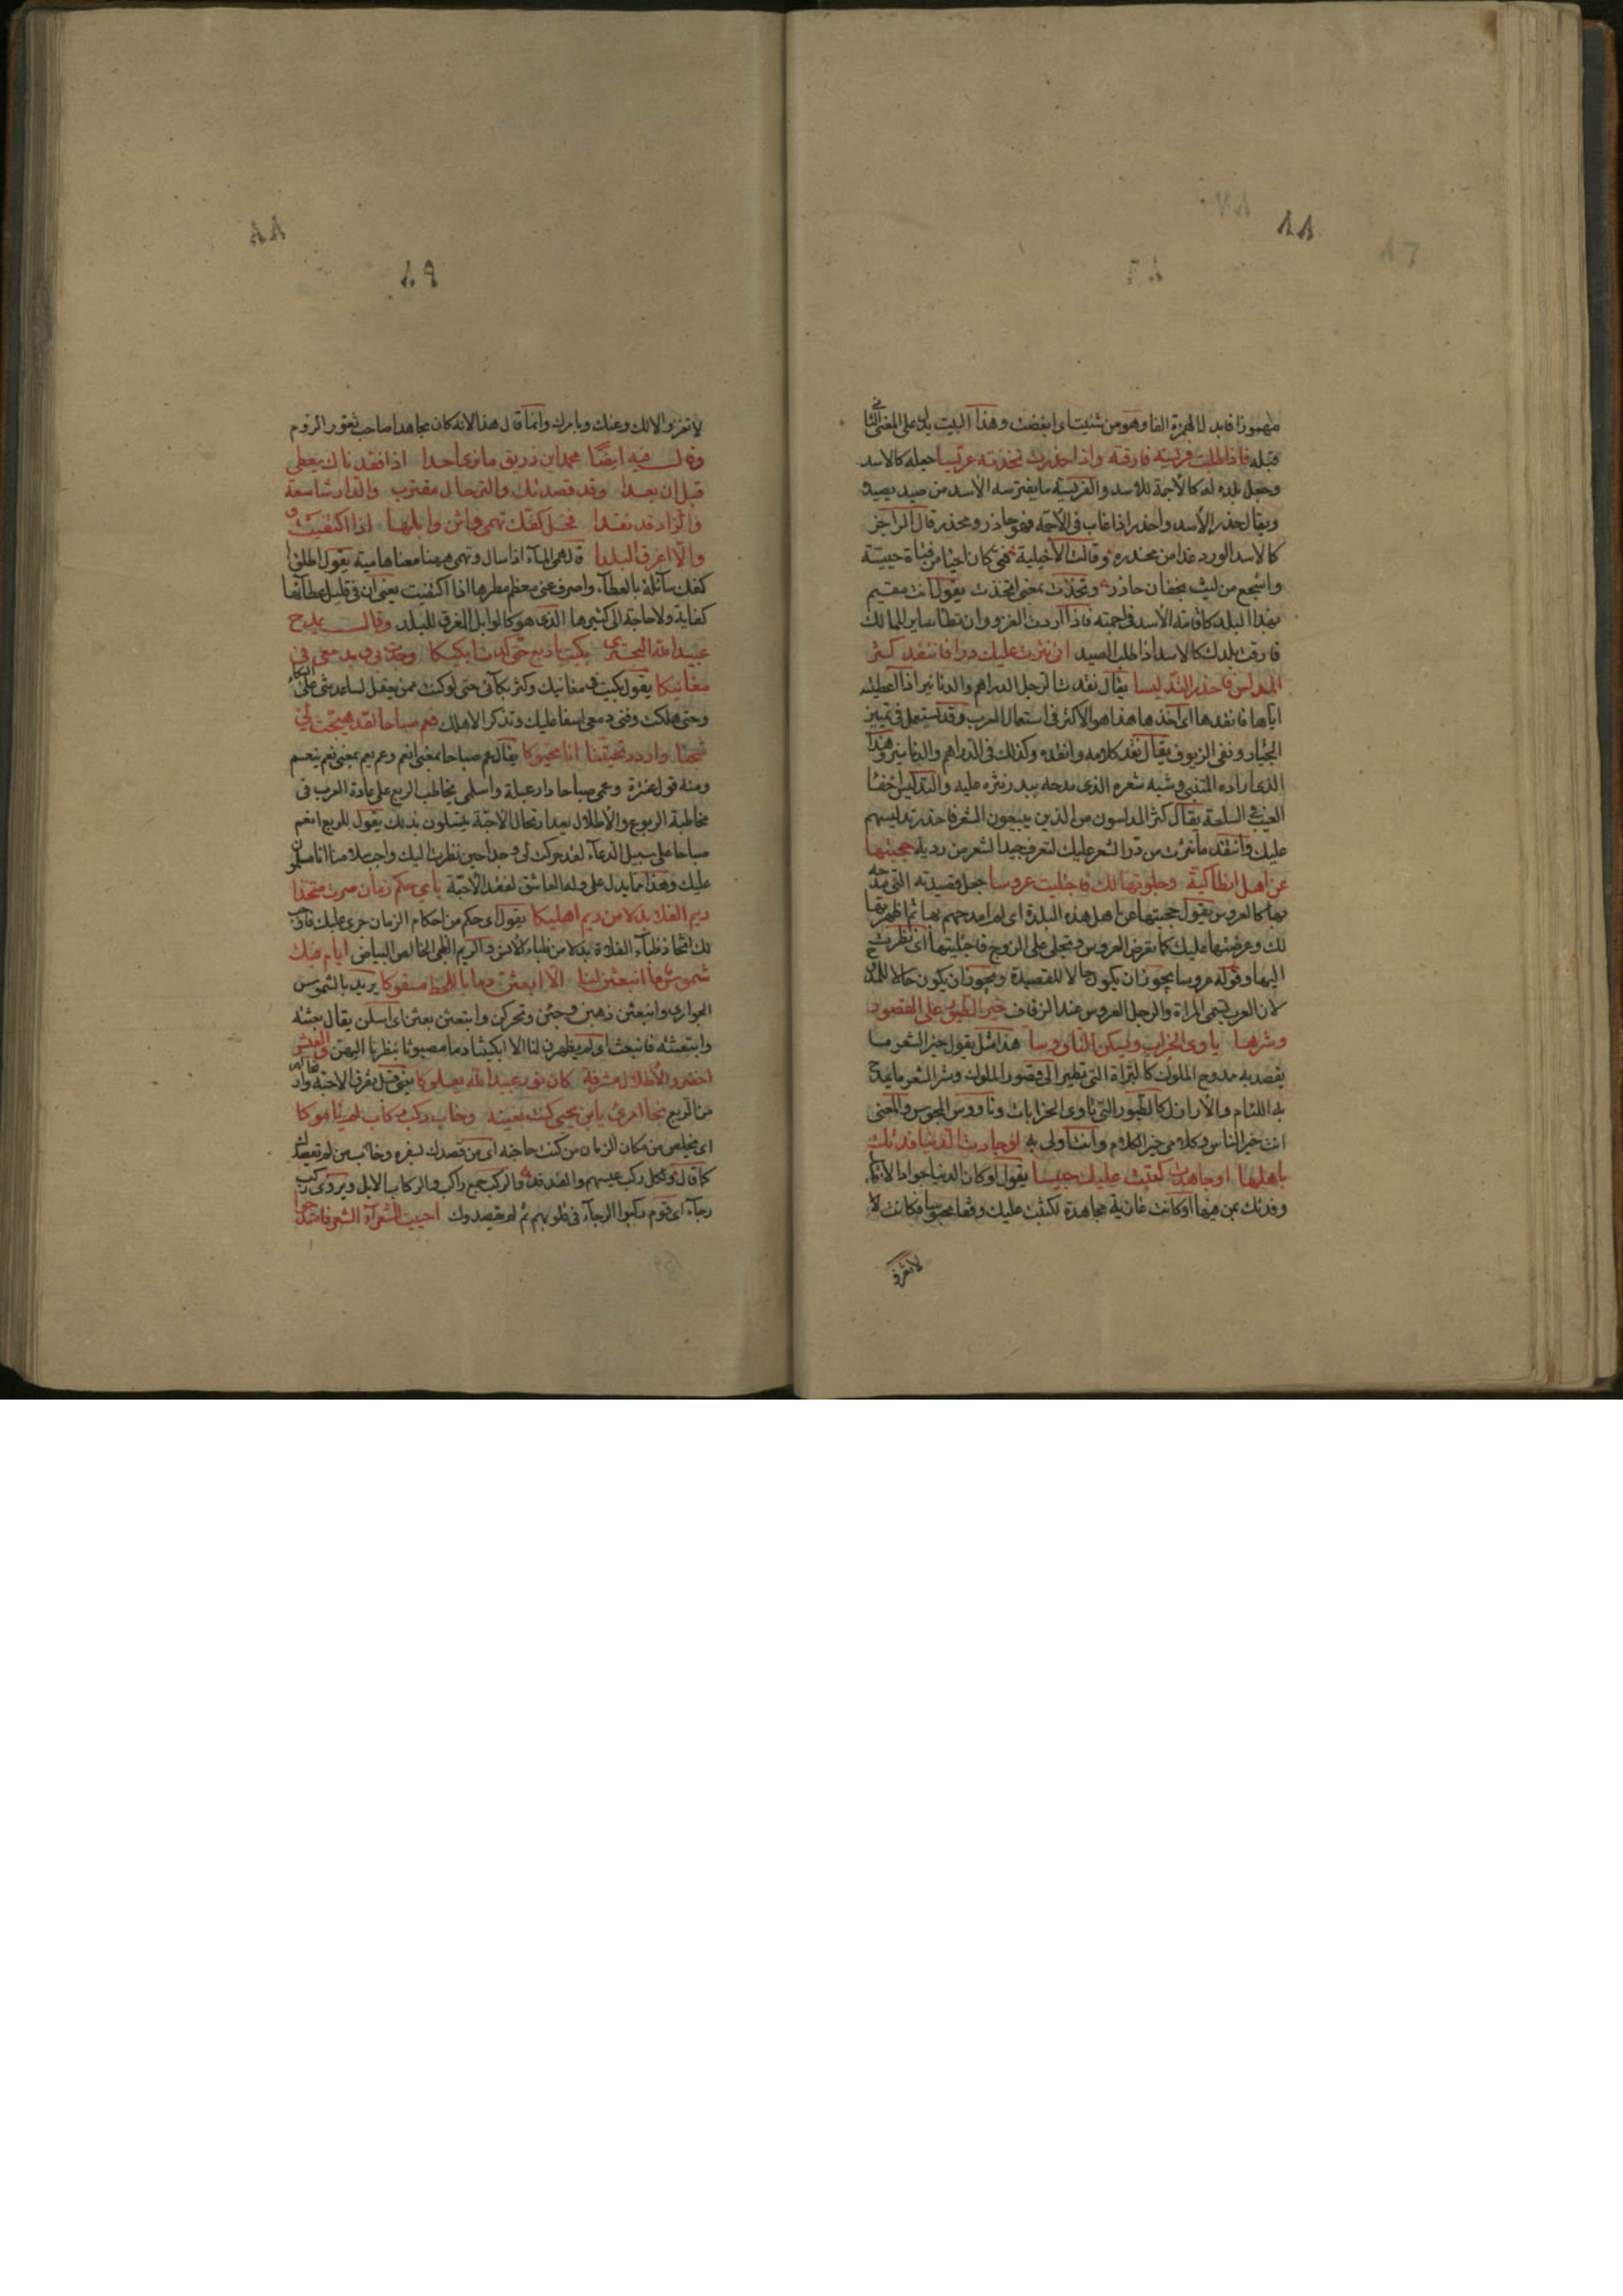 ٨٨
مهموزا فابدل الهمزة الفا وهو من شنيت اى ابغضت وهذا البيت يدل على المعنى الثانى
قبله فاذا طلبت فريسة فارقته واذا خدرت تخذته عريسا جعله كالاسد
وجعل بلده له كالاجمة للاسد والفريسة ما يفترسه الاسد من صيد يصيده
ويقال خدر الاسد واخدر اذا غاب فى الاجمة فهو خادر ومخدر قال الراجز
كالاسد الورد غدا من مخدره وقالت الاخيلية فتى كان احيا من فتاة حييّة
واشجع من ليث بخفان خادر وتخذت بمعنى اتخذت يقول انت مقيم
بهذا البلد كاقامة الاسد فى اجمته فاذا اردت الغزو وان تطأ ساير الممالك
فارقت بلدك كالاسد اذا طلب الصيد انى نثرت عليك درا فانتقد كثر
المدلس فاحذر التدليسا يقال نقدت الرجل الدراهم والدنانير اذا اعطيته
اياها فانتقدها اى اخذها هذا هو الاكثر فى استعمال العرب وقد يستعمل فى تمييز
الجياد ونفى الزيوف يقال نقد كلامه وانتقده وكذلك فى الدراهم والدنانير وهذا
الذى اراده المتنبى وشبه شعره الذى مدحه به بدر نثره عليه والتدليس اخفاء
العيب فى السلعة يقال كثر المدلسون من الذين يبيعون الشعر فاحذر تدليسهم
عليك وانتقد ما نثرت من در الشعر عليك لتعرف جيد الشعر من رديه حجبتها
عن اهل انطاكية وجلوتها لك فاجتليت عروسا جعل قصيدته التى مدحه
بها كالعروس يقول حجبتها عن اهل هذه البلدة اى لم امدحهم بها ثم اظهرتها
لك وعرضتها عليك كما تعرض العروس وتجلى على الزوج فاجتليتها اى نظرت
اليها وقوله عروسا يجوز ان يكون حالا للقصيدة ويجوز ان يكون حالا للممدوح
لان العرب تسمى المراة والرجل العروس عند الزفاف خير الطيور على القصور
وشرها ياوى الخراب ويسكن الناووسا هذا مثل يقول خير الشعر ما
يقصد به مدوح الملوك كالبزاة التى تطير الى قصور الملوك وشر الشعر ما يمدح
به اللئام والاراذل كالطيور التى تاوى الخرابات وناووس المجوس والمعنى
انت خير الناس وكلامى خير الكلام وانت اولى به لو جادت الدنيا فدتك
باهلها او جاهدت كتبت عليك حبيسا يقول لو كان الدنيا جوادا لابقتك
وفدتك بمن فيها او كانت غازية مجاهدة لكتبت عليك وقفا محبوسا فكانت لا
لا تغزو
٨٨
٨٩
لا تغزو الا لك وعنك وبامرك وانما قال هذا لانه كان مجاهدا صاحب ثغور الروم
وقال فيه ايضا محمد ابن زريق ما نرى احدا اذا فقدناك يعطى
قبل ان يعدا وقد قصدتك والترحال مقترب والدار شاسعة
والزاد قد نفدا فخل كفك تهمى واثن وابلها اذا اكتفيت
والا اغرق البلدا قال همى الماء اذا سال وتهمى ههنا معناها هامية يقول اطلق
كفك سائلة بالعطاء واصرف عنى معظم مطرها اذا اكتفيت يعنى ان فى قليل عطائها
كفاية ولا حاجة الى كثيرها الذى هو كالوابل المغرق للبلد وقال يمدح
عبيد الله البحترى بكيت يا ربع حتى كدت ابكيكا وجدت بى وبدمعى فى
مغانيكا يقول بكيت فى مغانيك وكثر بكائى حتى لو كنت ممن يعقل لساعدتنى على البكاء
وحتى هلكت وفنى دمعى اسفا عليك وتذكر الاهلك فعم صباحا لقد هيجت لى
شجنا واردد تحيتنا انا محيوكا يقال عم صباحا بمعنى انعم وعم يعم بمعنى نعم ينعم
ومنه قول عنترة وعمى صباحا دار عبلة واسلمى يخاطب الربع على عادة العرب فى
مخاطبة الربوع والاطلال بعد ارتحال الاحبة يتسلون بذلك يقول للربع انعم
صباحا على سبيل الدعاء لقد حركت لى وجدا حين نظرت اليك واجب سلامنا انا مسلمون
عليك وهذا مما يدل على وله العاشق لفقد الاحبة باى حكم زمان صرت متخذا
ريم الفلا بدلا من ريم اهليكا يقول اى حكم من احكام الزمان جرى عليك فاوجب
لك اتخاذ ظباء الفلاة بدلا من ظباء الانس والريم الظبى الخالص البياض ايام فيك
شموس ما انبعثن لنا الا ابتعثن دما باللحظ مسفوكا يريد بالشموس
الجوارى وانبعثن ذهبن وجئن وتحركن وابتعثن بعثن اى اسلن يقال بعثه
وابتعثه فانبعث اى لم يظهرن لنا الا ابكيننا دما مصبوبا بنظرنا اليهن والعيش
اخضر والاطلال مشرقة كان نور عبيد الله يعلوكا يعنى قبل تفرق الاحبة وارتحالهم
من الربع نجا امرئ يا ابن يحيى كنت بغيته وخاب ركب ركاب لم يؤموكا
اى تخلص من مكان الزمان من كنت حاجته اى من قصدك بسفره وخاب من لم يقصدك
كما قال ولكل ركب عيسهم والفدفد والركب جمع راكب والركاب الابل ويروى ركب
رجاء اى قوم ركبوا الرجاء فى قلوبهم ثم لم يقصدوك احييت للشعراء الشعر فامتدحوا